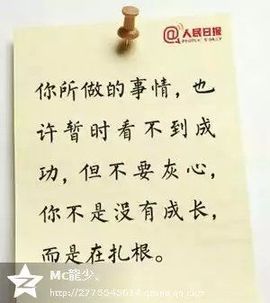 @人民日报
PEOPLE'S DAILY
你所做的事情，也
许暂时看不到成
功，但不要灰心，
你不是没有成长，
而是在扎根。
Mc龍少、